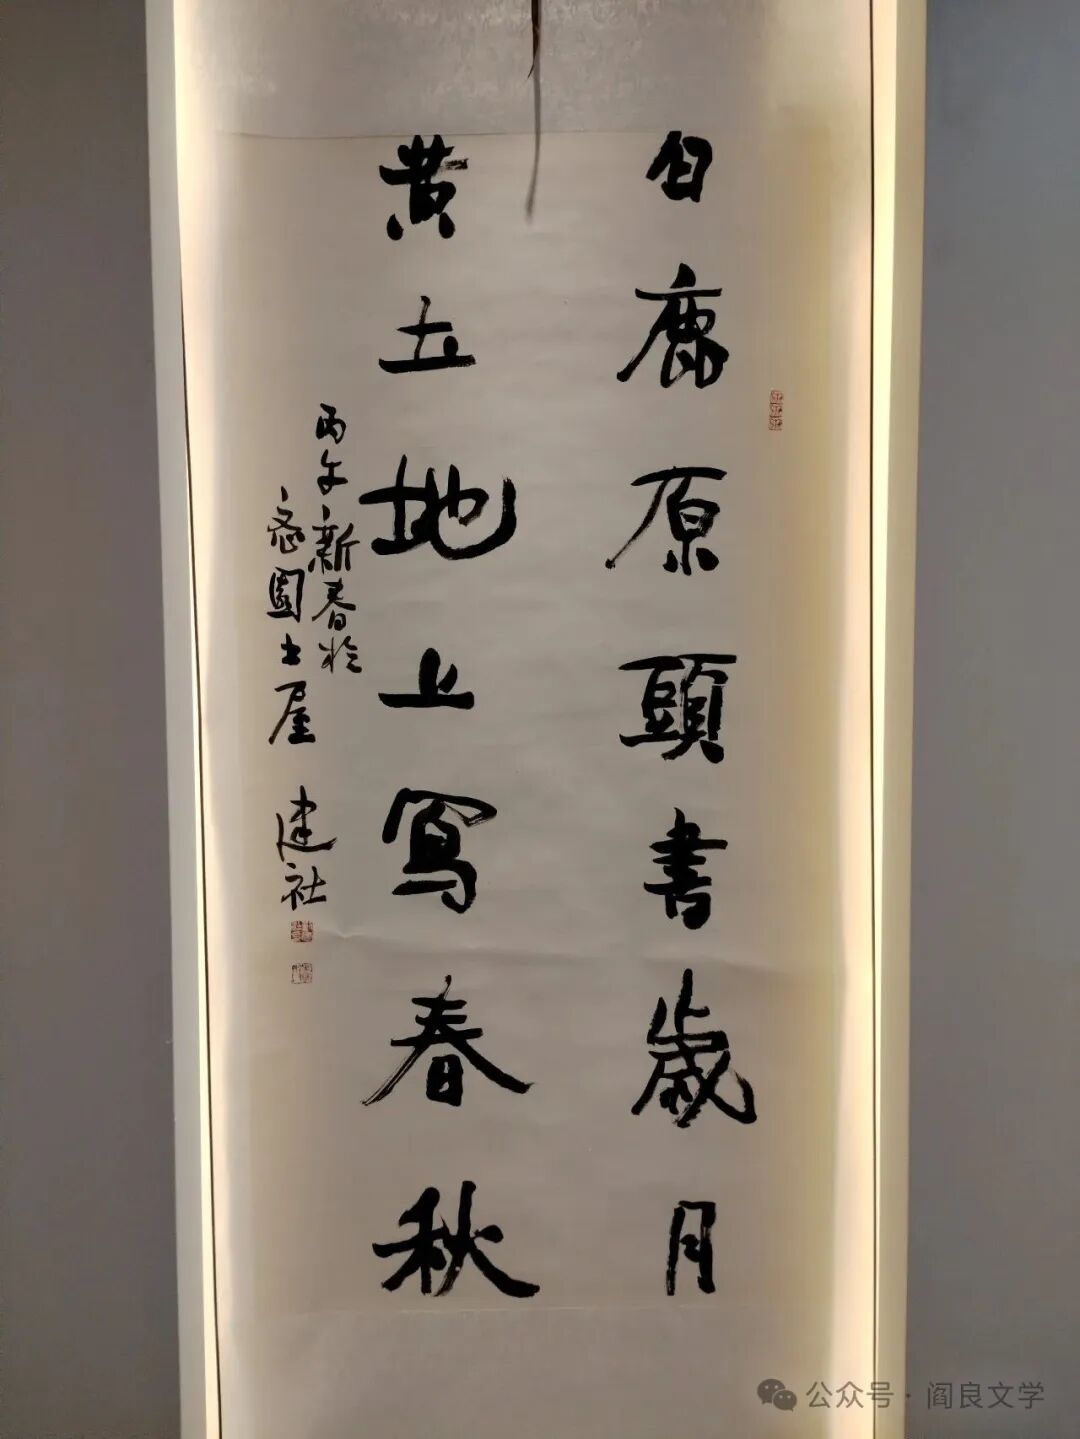 白鹿原頭書歲月
黄土地上寫春秋
丙午新春於
園土屋 建社
公众号 · 阎良文学